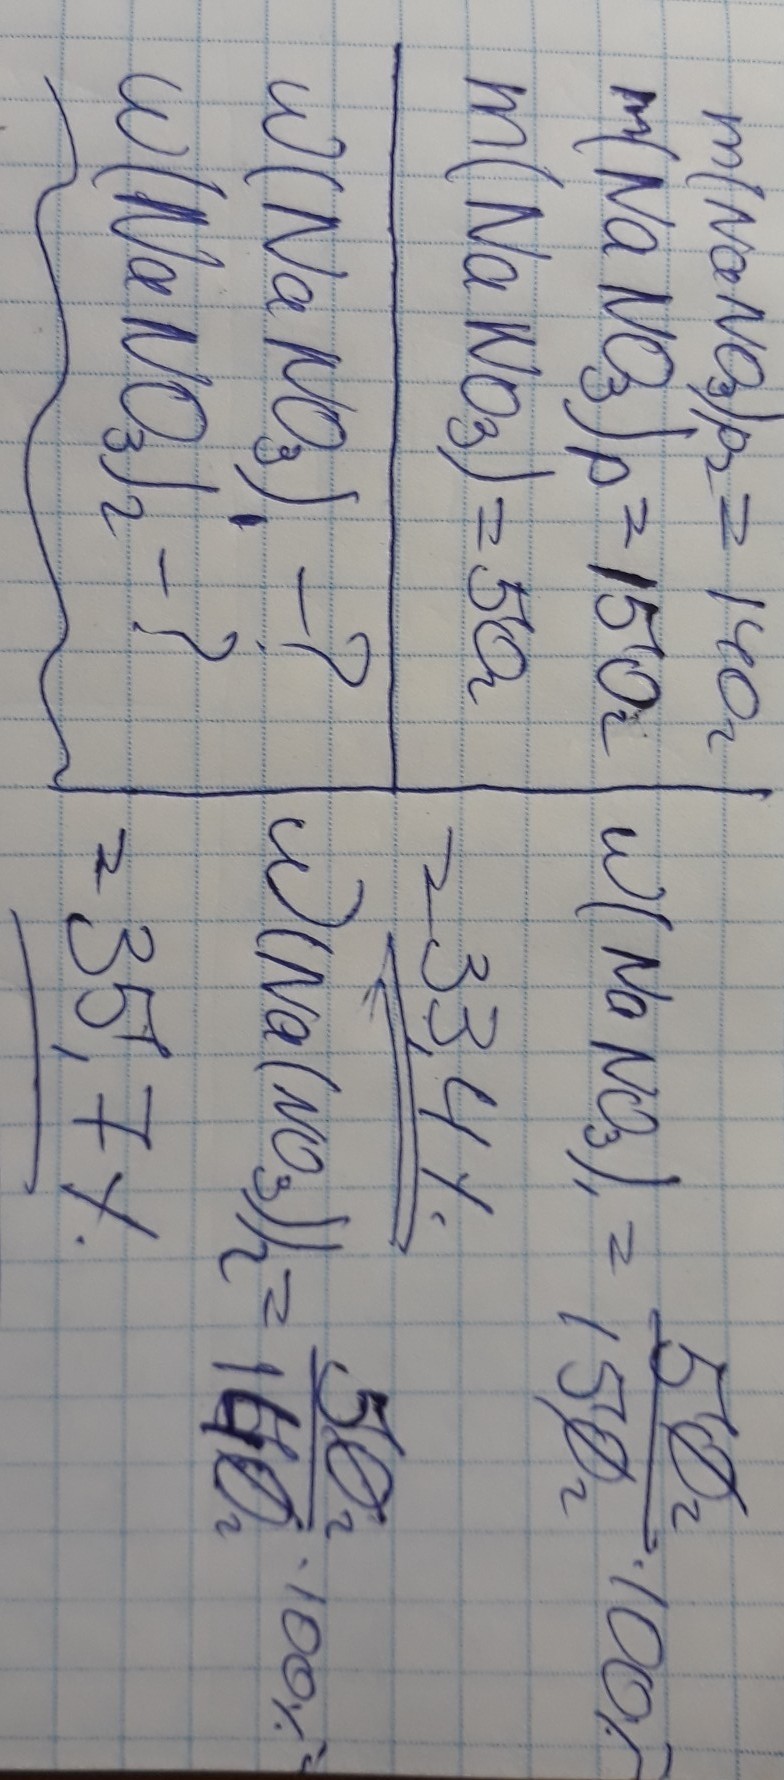 m(NaNO₃)p₂ = 140г
m(NaNO₃)p = 150г
m(NaNO₃) = 50г
w(NaNO₃)₁ - ?
w(NaNO₃)₂ - ?
w(NaNO₃)₁ = 50г/150г · 100% =
= 33,4%.
w(Na(NO₃))₂ = 50г/140г · 100% =
= 35,7%.